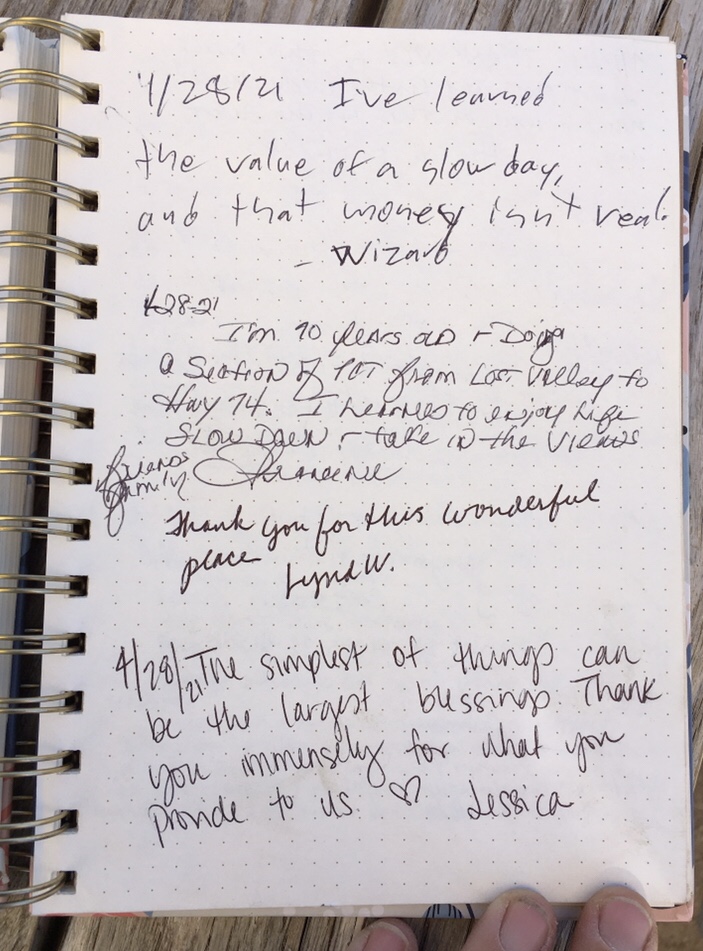 4/28/21 I've learned
the value of a slow day,
and that money isn't real.
- Wizard
4-28-21
I'm 70 years old + Doing
a Section of PCT from Lost Valley to
Hwy 74. I learned to enjoy Life
SLOW DOWN + take in the Views
friends
family
Thank you for this wonderful
peace
Lynd W.
4/28/21 The simplest of things can
be the largest blessings. Thank
you immensely for what you
provide to us ♡ Jessica